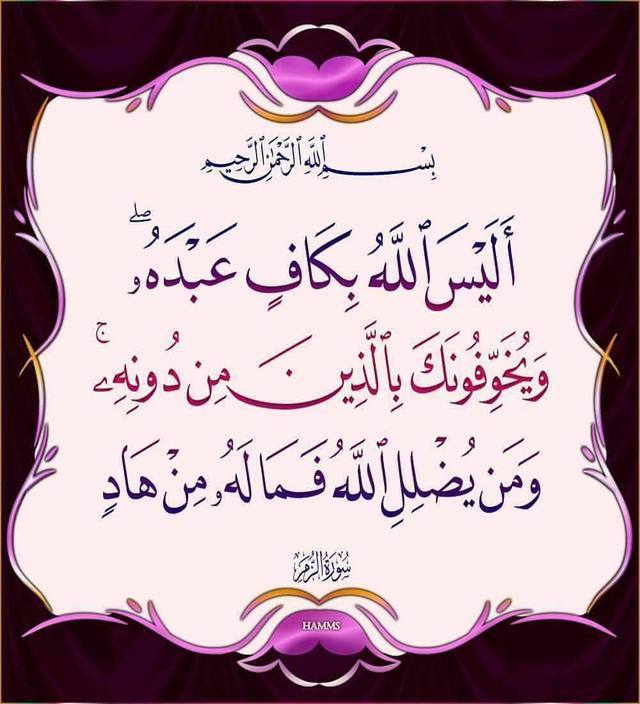 بِسْمِ ٱللَّهِ ٱلرَّحْمَٰنِ ٱلرَّحِيمِ
أَلَيْسَ ٱللَّهُ بِكَافٍ عَبْدَهُۥ ۖ
وَيُخَوِّفُونَكَ بِٱلَّذِينَ مِن دُونِهِۦ ۚ
وَمَن يُضْلِلِ ٱللَّهُ فَمَا لَهُۥ مِنْ هَادٍ
سُورَةُ الزُّمَرِ
HAMMS